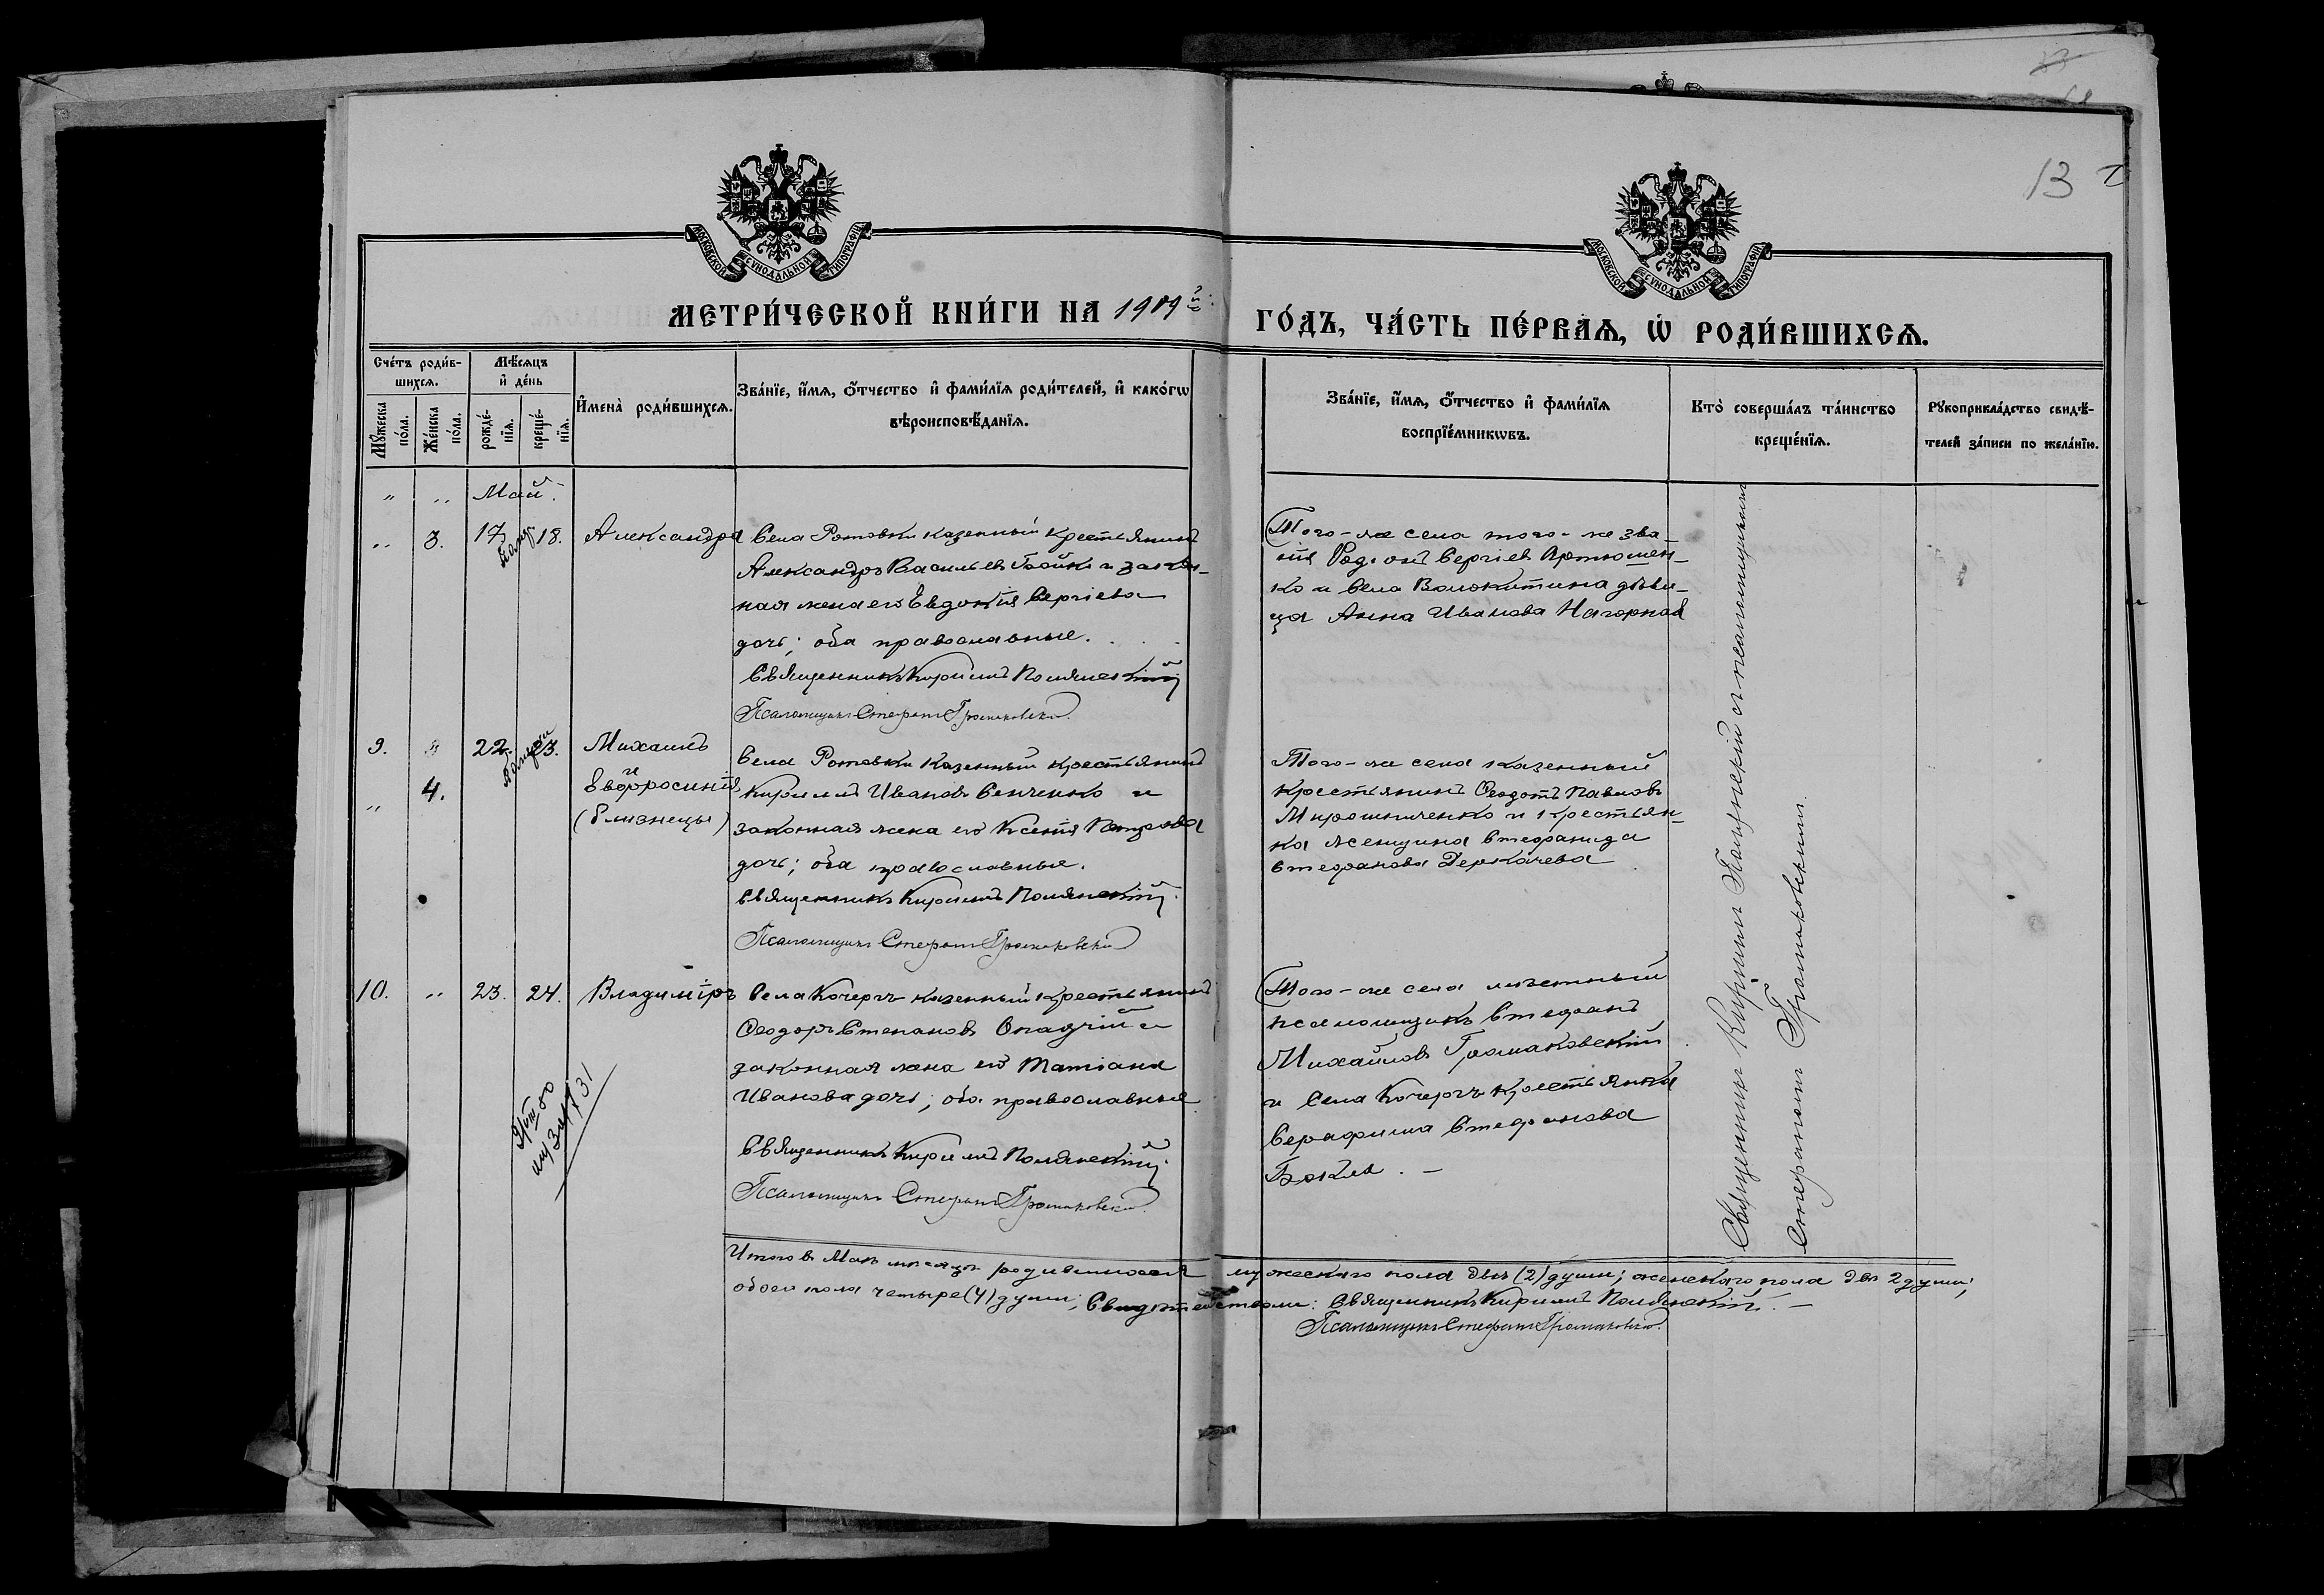 13
МОСКОВСКОЙ СѴНОДАЛЬНОЙ ТИПОГРАФІИ
МОСКОВСКОЙ СѴНОДАЛЬНОЙ ТИПОГРАФІИ
МЕТРИ́ЧЕСКОЙ КНИ́ГИ НА 1909й
ГО́ДЪ, ЧА́СТЬ ПЕ́РВАѦ, Ѡ РОДИ́ВШИХСѦ.
Сче́тъ роди́в-
шихсѧ.
Мꙋ́жеска по́ла.
Же́нска по́ла.
Мѣ́сѧцъ
и҆ де́нь
рожде́-
нїѧ.
креще́-
нїѧ.
И҆мена̀ роди́вшихсѧ.
Зва́нїе, и҆́мѧ, ѻ҆́тчество и҆ фами́лїѧ роди́телей, и҆ како́гѡ
вѣроисповѣ́данїѧ.
Зва́нїе, и҆́мѧ, ѻ҆́тчество и҆ фами́лїѧ
воспрїе́мникѡвъ.
Кто̀ соверша́лъ та́инство
креще́нїѧ.
Рꙋкоприкла́дство свидѣ́-
телей за́писи по жела́нїю.
" " Май.
" 3. 17. 18. Александра
Села Ротовки казенный крестьянинъ
Александръ Васильевъ Бойко и закон-
ная жена его Евдокія Сергіева
дочь; оба православные.
Священникъ Кириллъ Полянскій
Псаломщикъ Стефанъ Громаковскій
Того-же села того-же зва-
нія Родіонъ Сергіевъ Артюшен-
ко и села Волокитина дѣви-
ца Анна Иванова Нагорная
9. " 22. 23. Михаилъ
и
" 4. Евфросинія
(близнецы)
Села Ротовки казенный крестьянинъ
Кириллъ Ивановъ Сенченко и
законная жена его Ксенія Петрова
дочь; оба православные.
Священникъ Кириллъ Полянскій.
Псаломщикъ Стефанъ Громаковскій
Того-же села казенный
крестьянинъ Ѳеодотъ Павловъ
Мирошниченко и крестьян-
ка женщина Стефанида
Стефанова Деркачева
10. " 23. 24. Владиміръ
Села Кочергъ казенный крестьянинъ
Ѳеодоръ Степановъ Опадчій и
законная жена его Татіана
Иванова дочь; оба православные
Священникъ Кириллъ Полянскій.
Псаломщикъ Стефанъ Громаковскій.
Того-же села мѣстный
псаломщикъ Стефанъ
Михайловъ Громаковскій
и села Кочергъ крестьянка
Серафима Стефанова
Священникъ Кириллъ Полянскій съ псаломщикомъ
Стефаномъ Громаковскимъ.
Итого въ Маѣ мѣсяцѣ родившихся мужескаго пола двѣ (2) души; женскаго пола двѣ 2 души;
обоего пола четыре (4) души; Свидѣтельствомъ: Священникъ Кириллъ Полянскій.
Псаломщикъ Стефанъ Громаковскій.